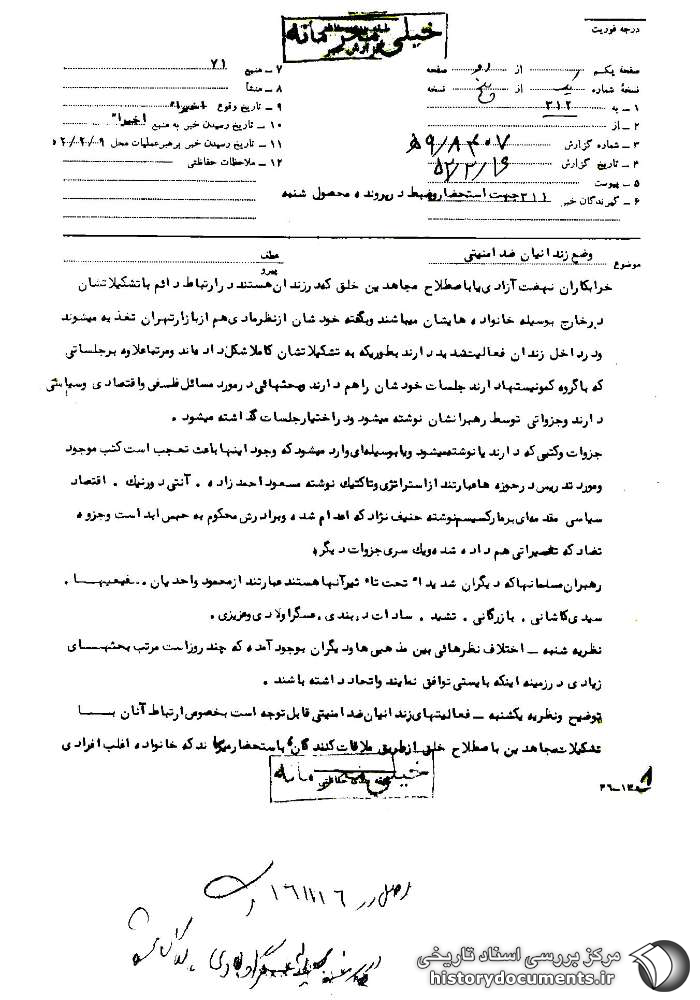 خیلی محرمانه
درجه فوریت
صفحه یکم از دو صفحه
نسخه شماره یک از پنج نسخه
۱ – به ۳۱۲
۲ – از
۳ – شماره گزارش
۴ – تاریخ گزارش
۵ – پیوست
۶ – گیرندگان خبر ۳۱۱ جهت استحضار وضبط در پرونده محصول شنبه
۷ – منبع ۷۱
۸ – منشأ
۹ – تاریخ وقوع اخیرا"
۱۰ – تاریخ رسیدن خبر به منبع اخیرا"
۱۱ – تاریخ رسیدن خبر برهبر عملیات محل ۵۲/۲/۹
۱۲ – ملاحظات حفاظتی
موضوع وضع زندانیان ضد امنیتی
عطف
پیرو
خرابکاران نهضت آزادی یا باصطلاح مجاهدین خلق که در زندان هستند در ارتباط دائم با تشکیلاتشان
در خارج بوسیله خانواده هایشان میباشند وبگفته خودشان از نظر مادی هم از بازار تهران تغذیه میشوند
ودر داخل زندان فعالیت شدید دارند بطوریکه به تشکیلاتشان کاملا شکل داده اند ومرتبا علاوه بر جلساتی
که با گروه کمونیستها دارند جلسات خودشان را هم دارند وبحثهائی در مورد مسائل فلسفی واقتصادی وسیاسی
دارند وجزواتی توسط رهبرانشان نوشته میشود ودر اختیار جلسات گذاشته میشود .
جزوات وکتبی که دارند یا نوشته میشود ویا بوسیله ای وارد میشود که وجود اینها باعث تعجب است کتب موجود
ومورد تدریس در حوزه ها عبارتند از استراتژی وتاکتیک نوشته مسعود احمدزاده . آنتی دورنیک . اقتصاد
سیاسی مقدمه ای بر مارکسیسم نوشته حنیف نژاد که اعدام شده وبرادرش محکوم به حبس ابد است وجزوه
تضاد که تغییراتی هم داده شده ویک سری جزوات دیگر .
رهبران مسلمانها که دیگران شدیدا" تحت تاثیر آنها هستند عبارتند از محمود واحدیان – شفیعیها .
سیدی کاشانی . بازرگانی . تشید . سادات دربندی . عسگراولادی وعزیزی .
نظریه شنبه – اختلاف نظرهائی بین مذهبی ها ودیگران بوجود آمده که چند روز است مرتب بحثهای
زیادی در زمینه اینکه بایستی توافق نمایند واتحاد داشته باشند .
توضیح ونظریه یکشنبه – فعالیتهای زندانیان ضد امنیتی قابل توجه است بخصوص ارتباط آنان با
تشکیلات مجاهدین باصطلاح خلق از طریق ملاقات کنندگان با استحضار میرساند که خانواده اغلب افرادی
خیلی محرمانه
طبقه بندی حفاظتی
مرکز بررسی اسناد تاریخی
historydocuments.ir